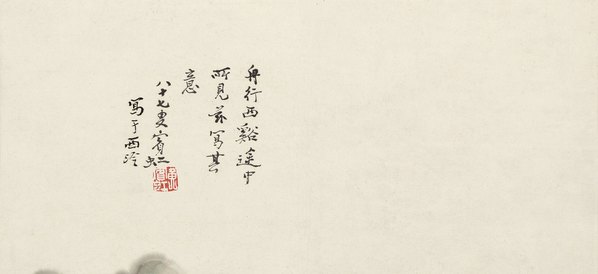 舟行西谿途中
所見茲寫其
意
八十七叟賓虹
寫于西泠
黃賓虹